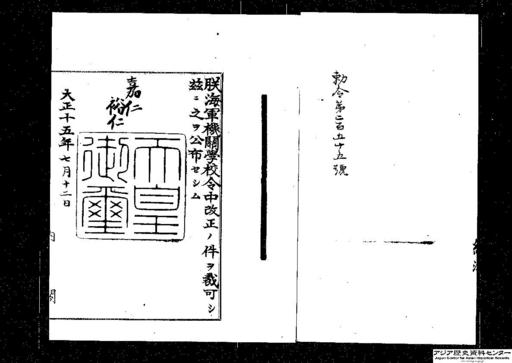 勅令第二百五十五號
朕海軍機關學校令中改正ノ件ヲ裁可シ
茲ニ之ヲ公布セシム
嘉仁
裕仁
天皇
御璽
大正十五年七月十二日
内閣
アジア歴史資料センター
Japan Center for Asian Historical Records